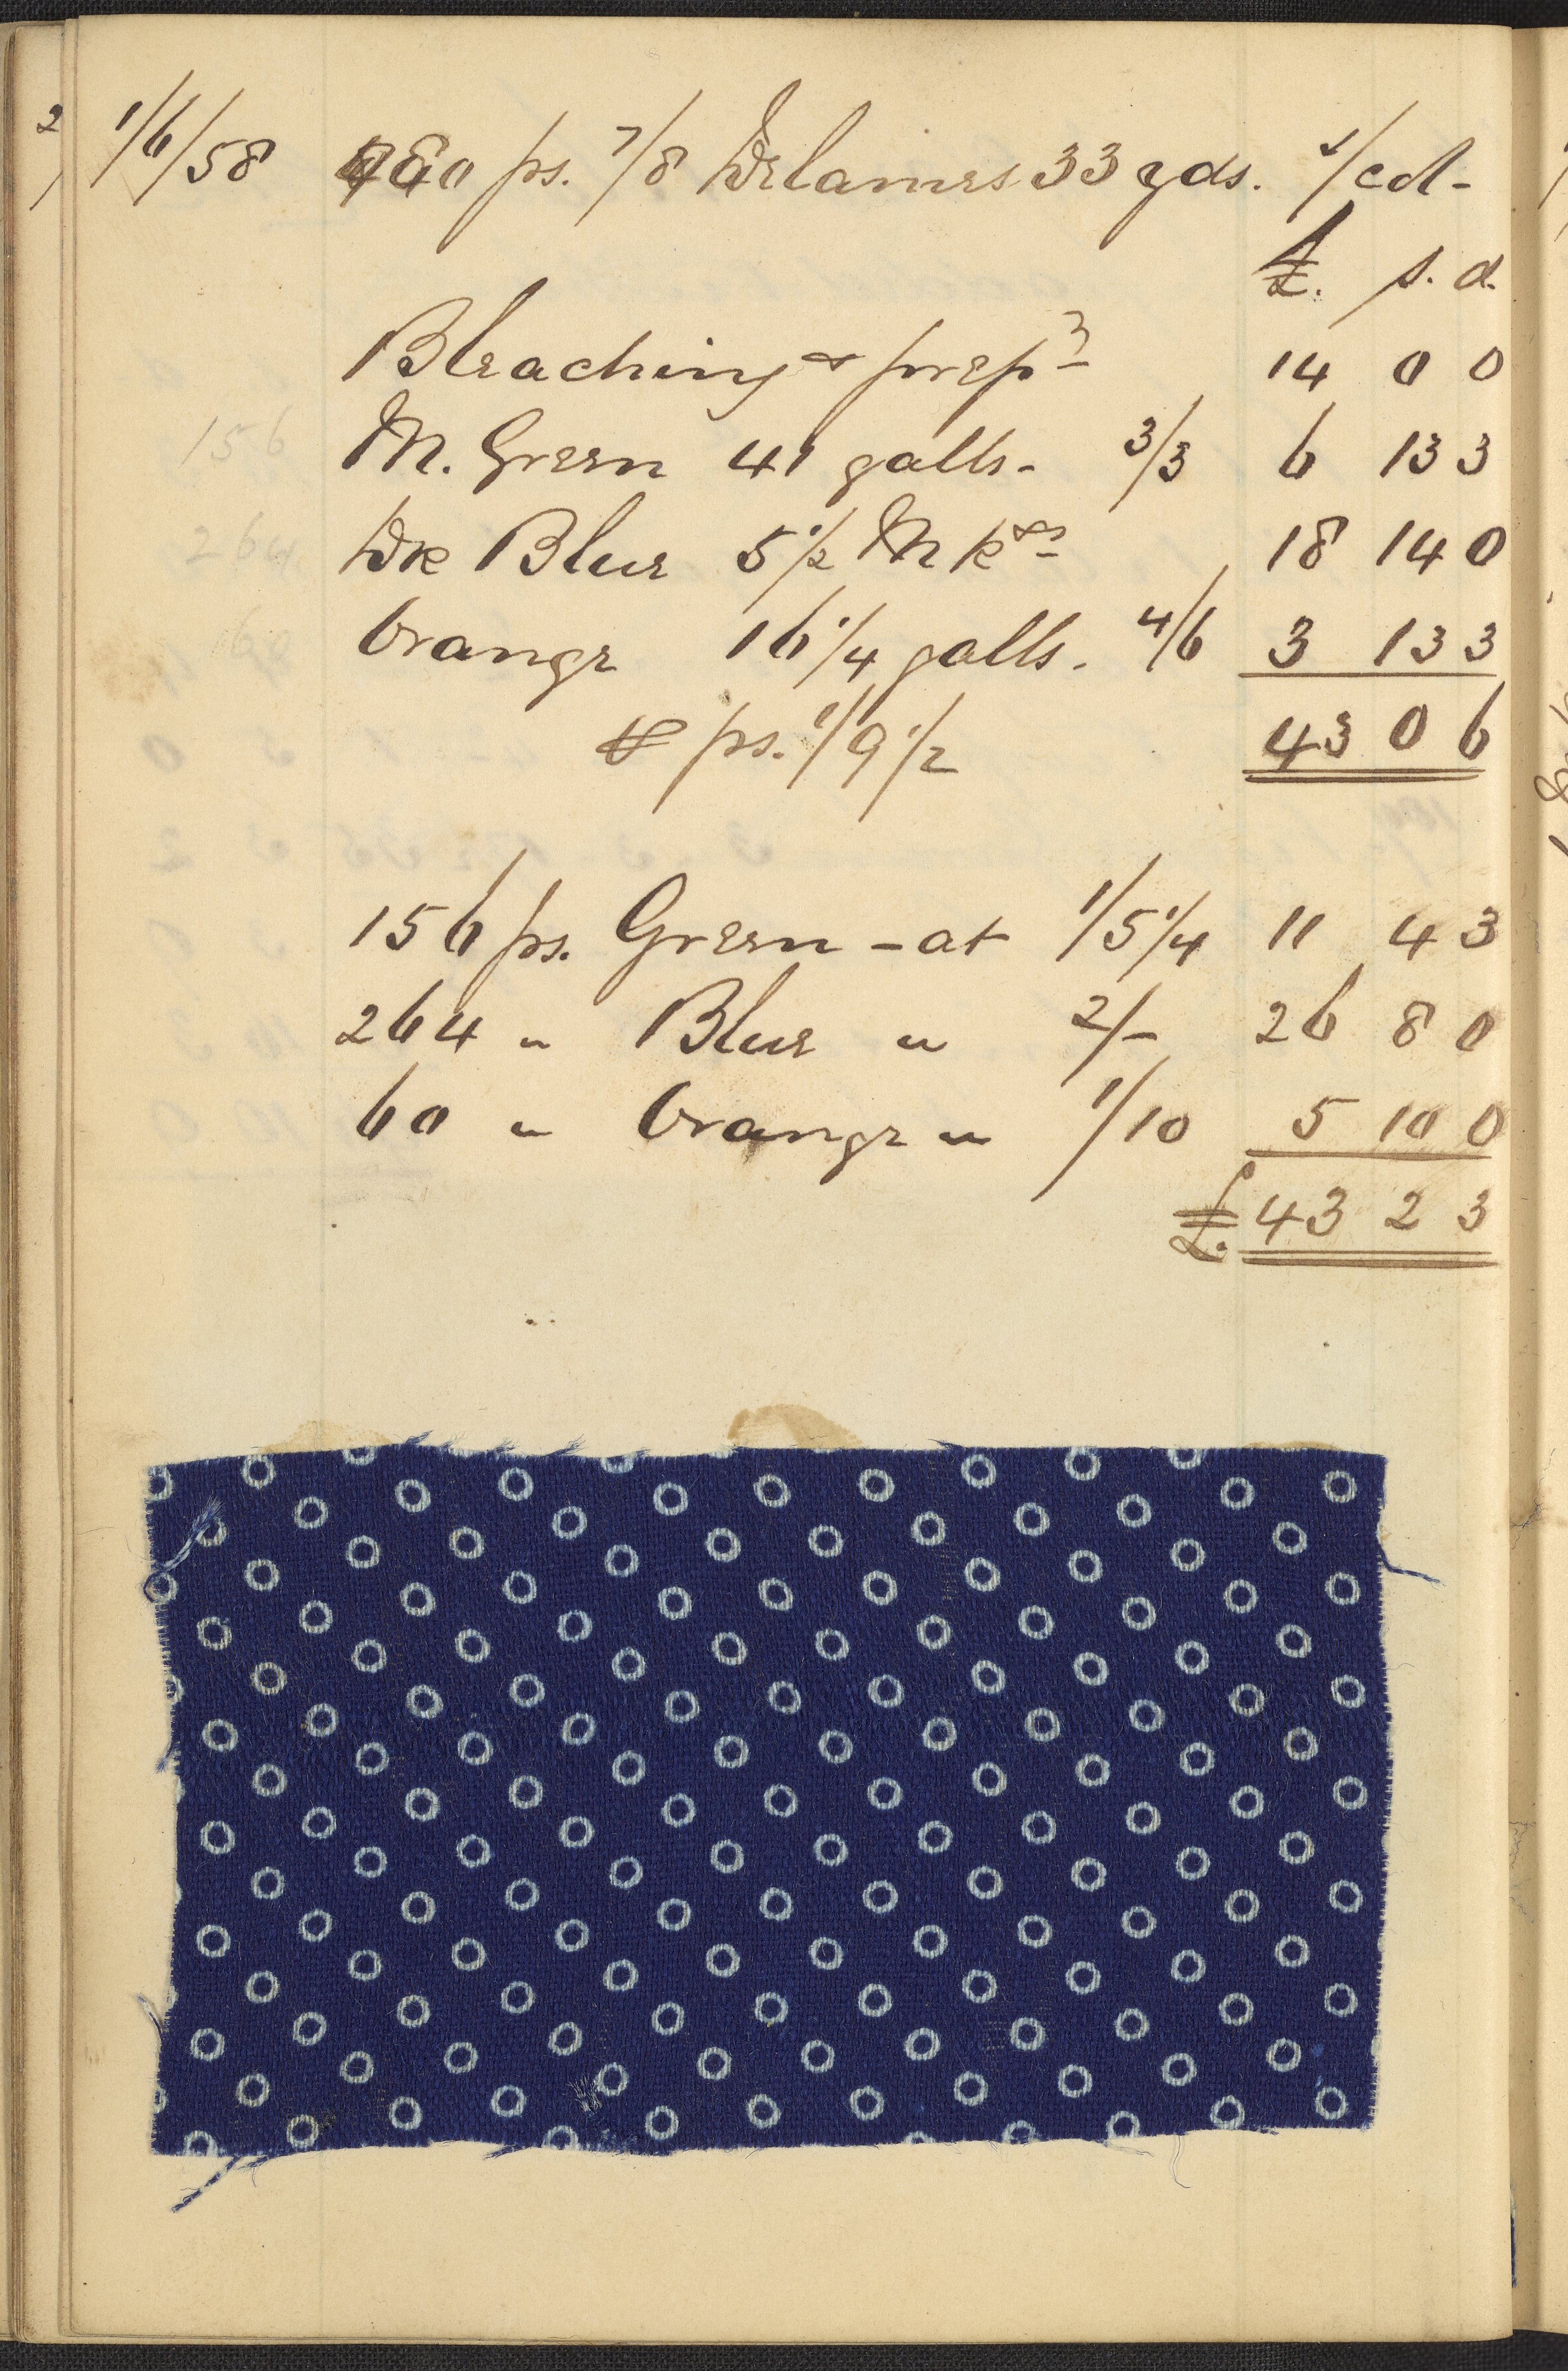 2
1/6/58 480 ps. 7/8 Delaines 33 yds. 1/cd-
£. s. d.
Bleaching & prep⁠ⁿ 14 0 0
156 M. Green 41 galls- 3/3 6 13 3
264 Dk Blue 5 1/2 M ks 18 14 0
60 Orange 16 1/4 galls. 4/6 3 13 3
⅌ ps. 1/9 1/2 43 0 6
156 ps. Green - at 1/5 1/4 11 4 3
264 " Blue " 2/- 26 8 0
60 " Orange " 1/10 5 10 0
£. 43 2 3